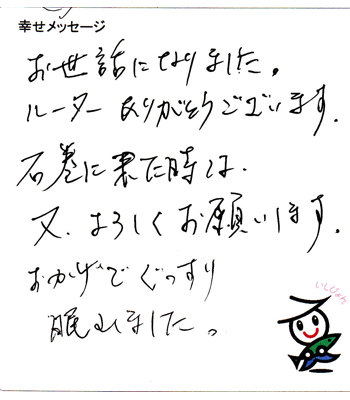 幸せメッセージ
お世話になりました。
ルーターありがとうございます.
石巻に来た時は.
又.よろしくお願いします.
おかげでぐっすり
眠れました。
いしぴょん